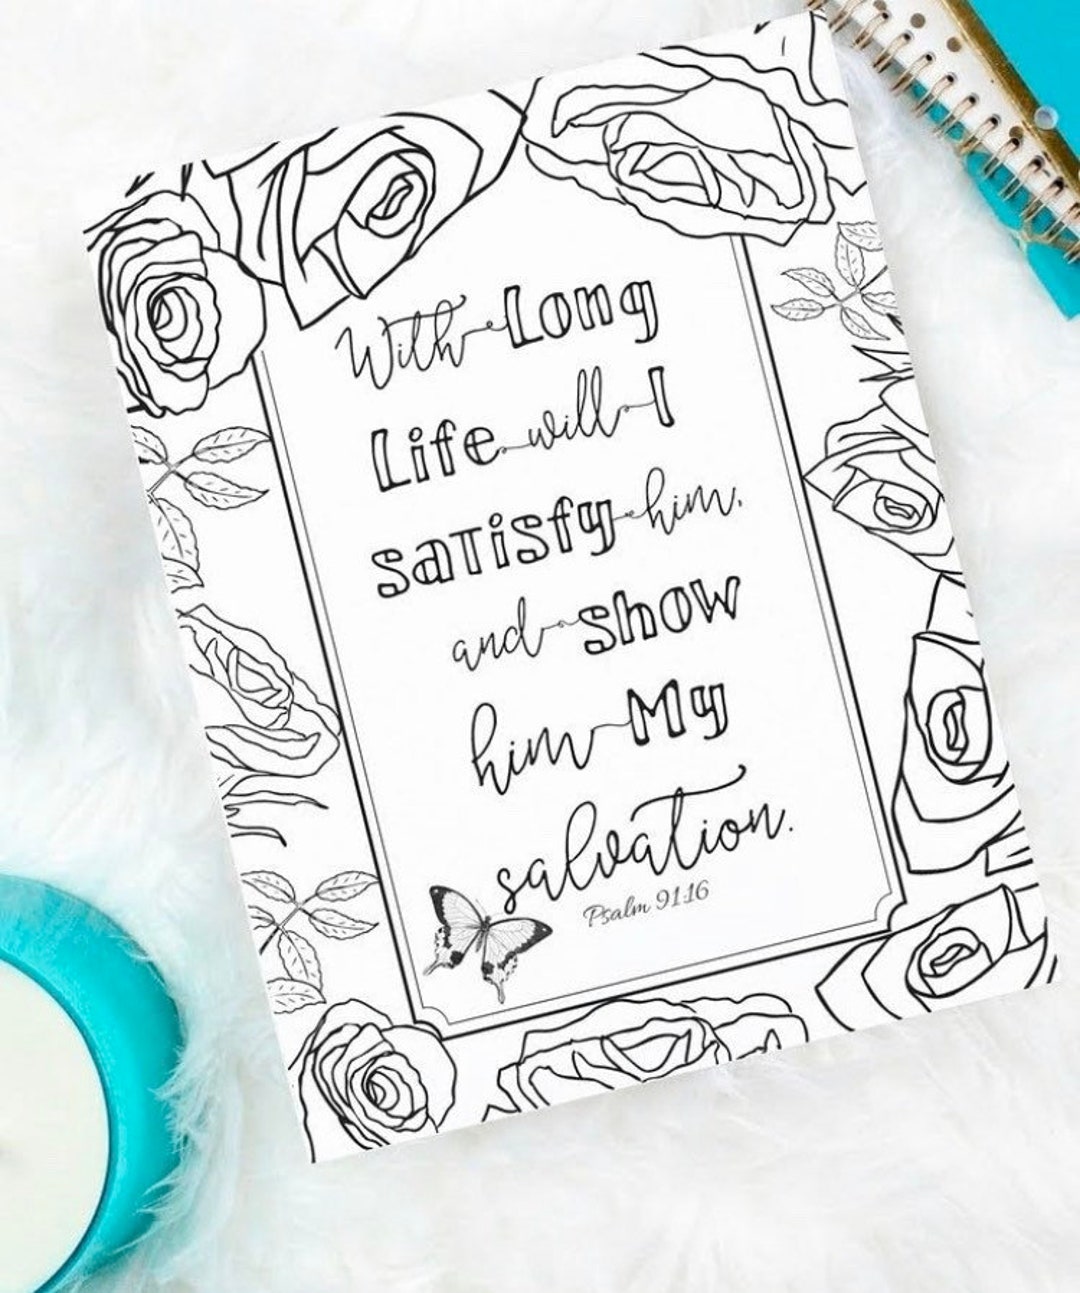 With Long
Life will I
satisfy him,
and show
him My
salvation.
Psalm 91:16